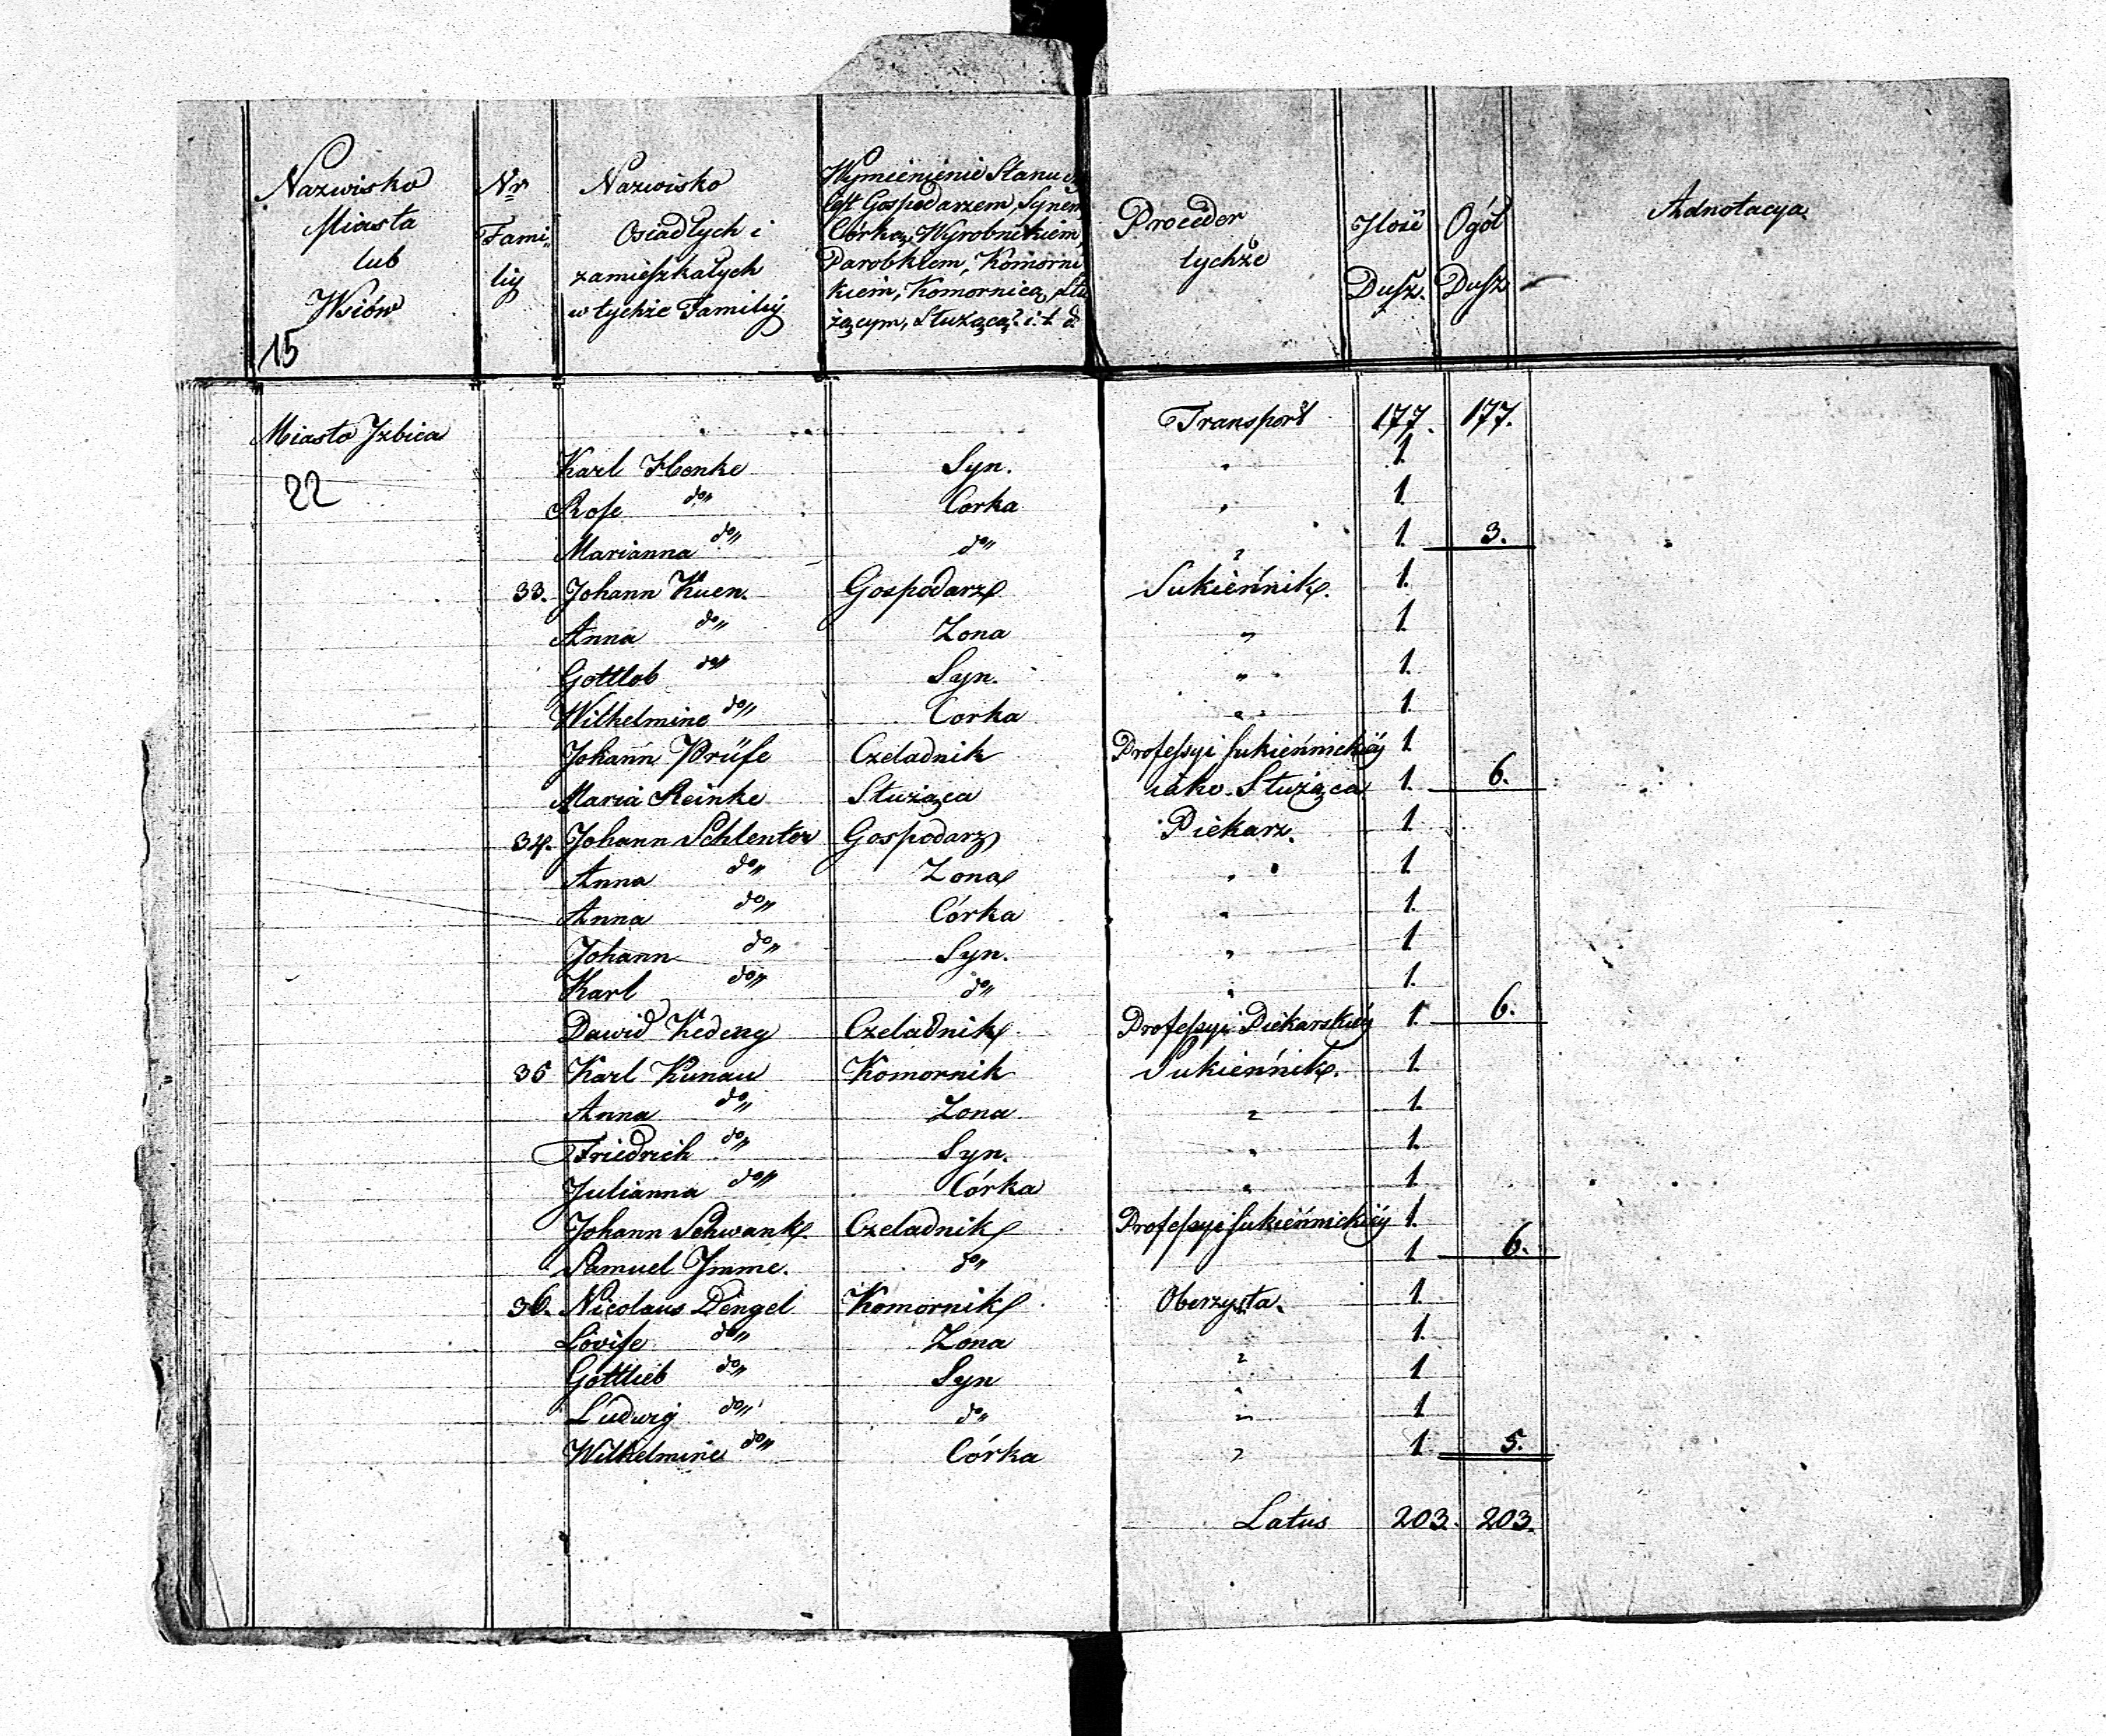 Nazwisko Miasta lub Wsiów
Nr Fami-lij
Nazwisko Osiadłych i zamieszkałych w tychże Familij
Wymienienie Stanu
iest Gospodarzem, Synem
Córką, Wyrobnikiem,
Parobkiem, Komorni
kiem, Komornicą, Słu
żącym, Służącą i.t.d.
Proceder tychże
Ilość Dusz.
Ogół Dusz
Adnotacya
15
Miasto Izbica Transport 177. 177.
22
Karl Henke Syn. " 1.
Rose do" Corka " 1.
Marianna do" do" " 1. 3.
33. Johann Kuen. Gospodarz Sukiennik. 1.
Anna do" Zona " 1.
Gottlob do" Syn. " 1.
Wilhelmine do" Corka " 1.
Johann Prüfe Czeladnik Professyi Sukiennickiéy 1.
Maria Reinke Służąca iako Służąca 1. 6.
34. Johann Schlenter Gospodarz Piekarz. 1.
Anna do" Zona " 1.
Anna do" Córka " 1.
Johann do" Syn. " 1.
Karl do" do" " 1.
Dawid Kedeng Czeladnik Professyi Piekarskiéy 1. 6.
35 Karl Kunau Komornik Sukiennik. 1.
Anna do" Zona " 1.
Friedrich do" Syn. " 1.
Julianna do" Córka " 1.
Johann Schwank. Czeladnik Professyi Sukiennickiéy 1.
Samuel Imme. do" 1 6.
36. Nicolaus Dengel Komornik Oberzysta. 1.
Lovise do" Zona " 1.
Gottlieb do" Syn " 1
Ludwig do" do" " 1
Wilhelmine do" Córka " 1 5.
Latus 203. 203.